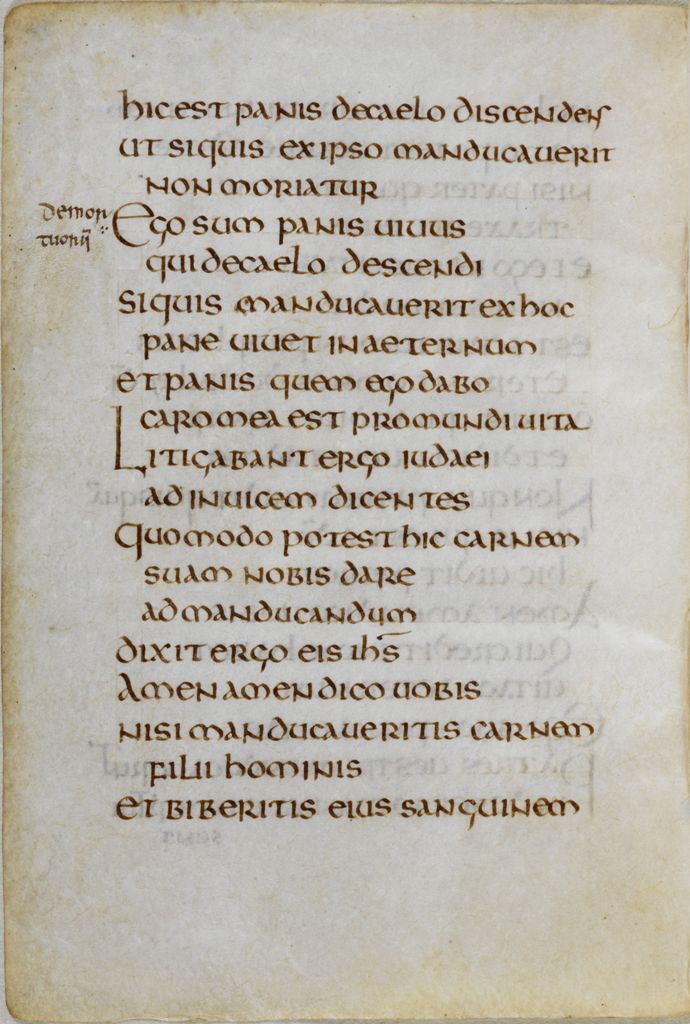 hic est panis de caelo discendens
ut si quis ex ipso manducauerit
non moriatur
demor
tuorū
Ego sum panis uiuus
qui de caelo descendi
Si quis manducauerit ex hoc
pane uiuet in aeternum
et panis quem ego dabo
caro mea est pro mundi uita
Litigabant ergo iudaei
ad inuicem dicentes
Quomodo potest hic carnem
suam nobis dare
ad manducandum
dixit ergo eis ihs̄
Amen amen dico uobis
nisi manducaueritis carnem
filii hominis
et biberitis eius sanguinem